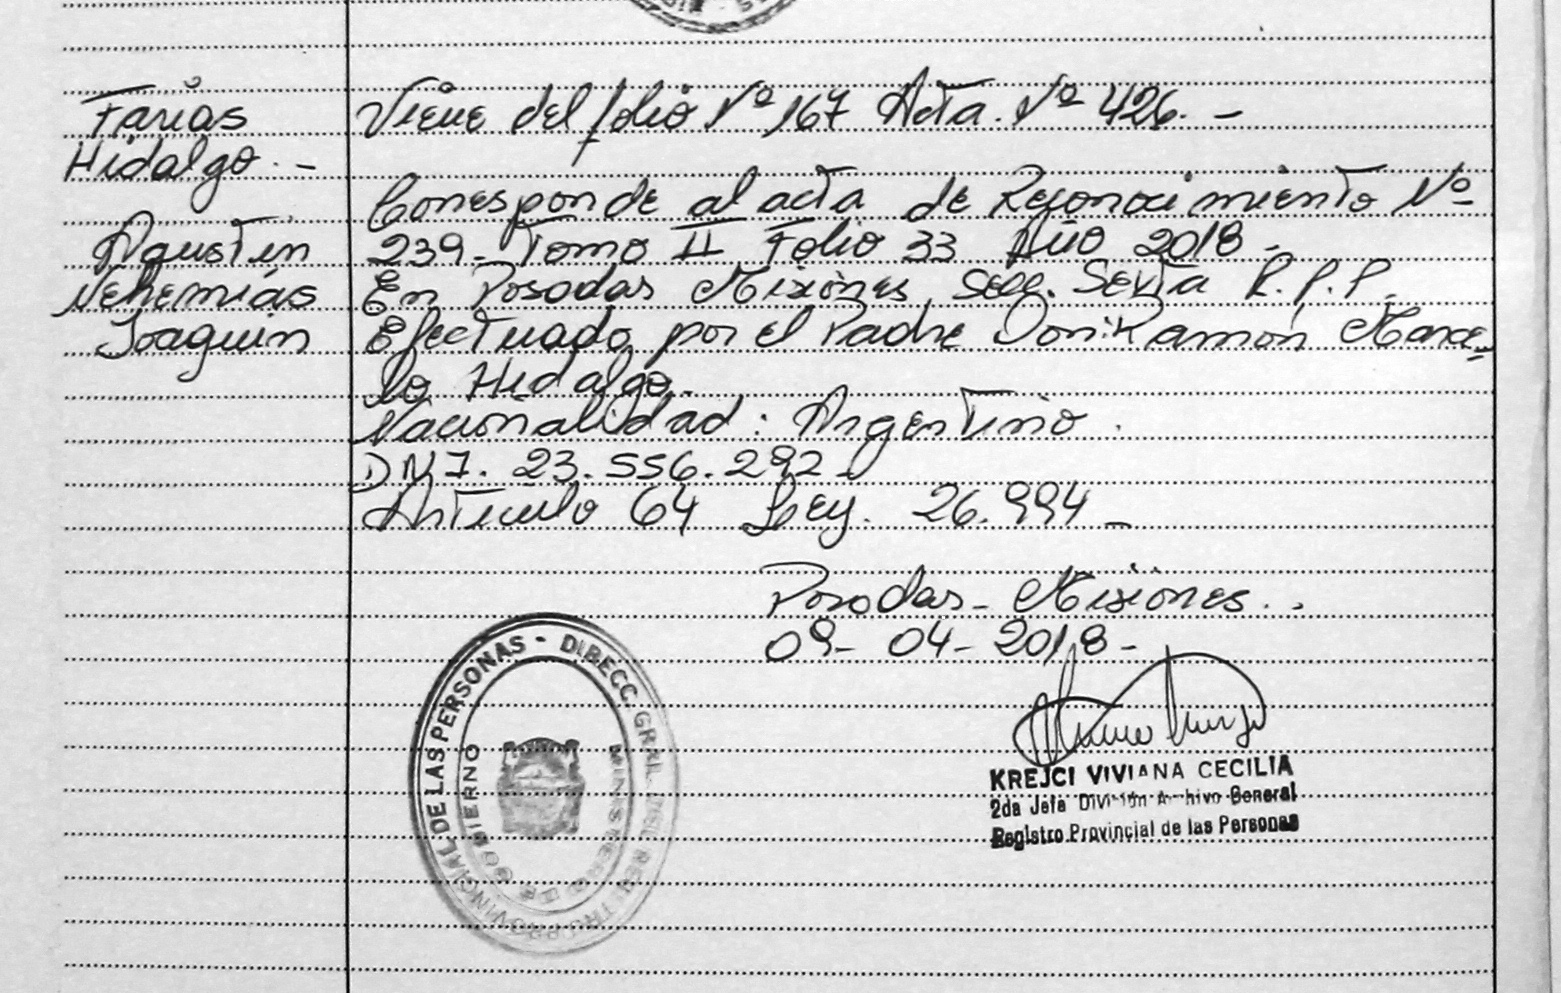 Farias
Hidalgo. -
Agustin
Nehemias
Joaquin
Viene del folio Nº 167 Acta. Nº 426. -
Corresponde al acta de Reconocimiento Nº
239- Tomo II Folio 33 Año 2018 -
En Posadas Misiones, Secc. Sexta R. P. P.
Efectuado por el Padre Don: Ramón Marce=
lo Hidalgo.
Nacionalidad: Argentino.
DNI. 23.556.292-
Articulo 64 Ley. 26.994 -
Posadas - Misiones..
09- 04- 2018 -
KREJCI VIVIANA CECILIA
2da Jefa División Archivo General
Registro Provincial de las Personas
DIRECC. GRAL. DEL REG. PROVINCIAL DE LAS PERSONAS -
MINISTERIO DE GOBIERNO